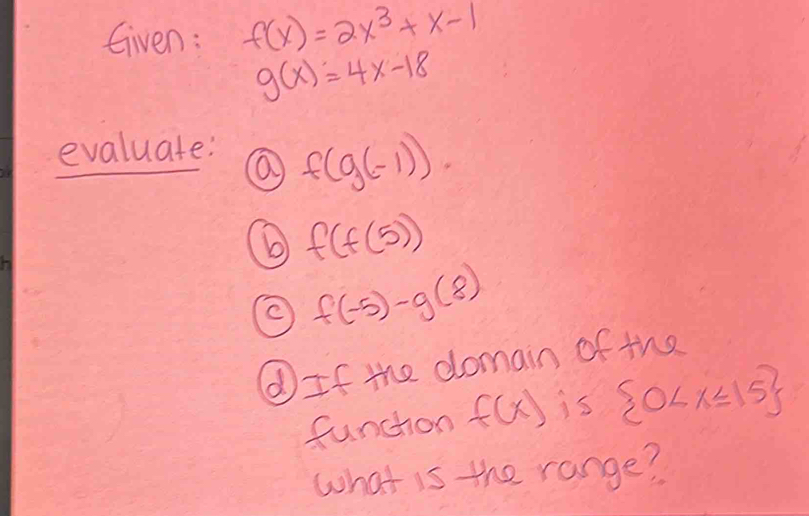 Given: f(x) = 2x³ + x - 1
g(x) = 4x - 18
evaluate:
ⓐ f(g(-1)).
ⓑ f(f(5))
ⓒ f(-5) - g(8)
ⓓ If the domain of the
function f(x) is {0 < x ≤ 15}
what is the range?